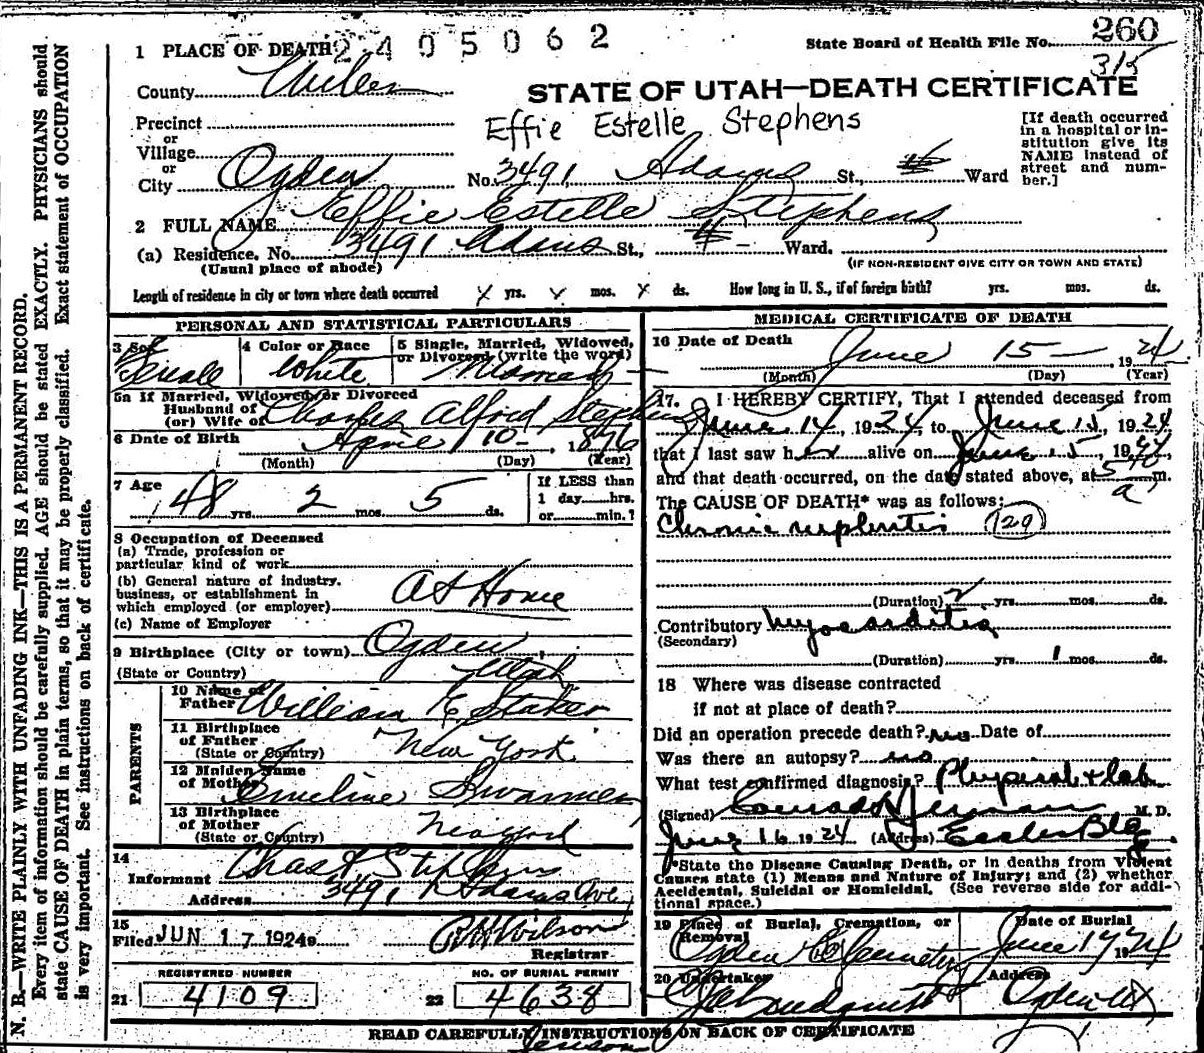 2405062
260
315
1 PLACE OF DEATH
State Board of Health File No.
County Weber
STATE OF UTAH—DEATH CERTIFICATE
Precinct
or
Village
or
City Ogden
Effie Estelle Stephens
No. 3491 Adams St., Ward
[If death occurred
in a hospital or in-
stitution give its
NAME instead of
street and num-
ber.]
2 FULL NAME Effie Estelle Stephens
(a) Residence. No. 3491 Adams St., Ward.
(Usual place of abode)
(IF NON-RESIDENT GIVE CITY OR TOWN AND STATE)
Length of residence in city or town where death occurred yrs. mos. ds. How long in U. S., if of foreign birth? yrs. mos. ds.
PERSONAL AND STATISTICAL PARTICULARS
3 Sex
Female
4 Color or Race
White
5 Single, Married, Widowed,
or Divorced (write the word)
5a If Married, Widowed or Divorced
Husband of
(or) Wife of Charles Alfred Stephens
6 Date of Birth April 10 - 1876
(Month) (Day) (Year)
7 Age 48 yrs. 2 mos. 5 ds.
If LESS than
1 day hrs.
or min.?
8 Occupation of Deceased
(a) Trade, profession or
particular kind of work
(b) General nature of industry.
business, or establishment in
which employed (or employer)
At Home
(c) Name of Employer
9 Birthplace (City or town) Ogden
(State or Country) Utah
PARENTS
10 Name of
Father William E Staker
11 Birthplace
of Father
(State or Country) New York
12 Maiden Name
of Mother Emeline
13 Birthplace
of Mother
(State or Country) New York
14
Informant Chas A Stephens
Address 3491 Adams Ave,
15
Filed JUN 17 1924
Wilson
Registrar
REGISTERED NUMBER
21 4109
NO. OF BURIAL PERMIT
22 4638
MEDICAL CERTIFICATE OF DEATH
16 Date of Death June 15 — 1924
(Month) (Day) (Year)
17. I HEREBY CERTIFY, That I attended deceased from
June 14, 1924, to June 15, 1924
that I last saw her alive on June 15, 1924,
and that death occurred, on the date stated above, at 5 a m.
The CAUSE OF DEATH* was as follows:
Chronic nephritis (129)
(Duration) 2 yrs. mos. ds.
Contributory Myocarditis
(Secondary)
(Duration) yrs. 1 mos. ds.
18 Where was disease contracted
if not at place of death?
Did an operation precede death? no Date of
Was there an autopsy? no
What test confirmed diagnosis? Physical + lab
(Signed) M. D.
June 16 1924 (Address) Eccles Bldg
*State the Disease Causing Death, or in deaths from Violent
Causes state (1) Means and Nature of Injury; and (2) whether
Accidental, Suicidal or Homicidal. (See reverse side for addi-
tional space.)
19 Place of Burial, Cremation, or
Removal
Ogden Cemetery
Date of Burial
June 17 1924
20 Undertaker
Address
Ogden Ut
READ CAREFULLY INSTRUCTIONS ON BACK OF CERTIFICATE
N. B.—WRITE PLAINLY WITH UNFADING INK—THIS IS A PERMANENT RECORD.
Every item of information should be carefully supplied. AGE should be stated EXACTLY. PHYSICIANS should
state CAUSE OF DEATH in plain terms, so that it may be properly classified. Exact statement of OCCUPATION
is very important. See instructions on back of certificate.